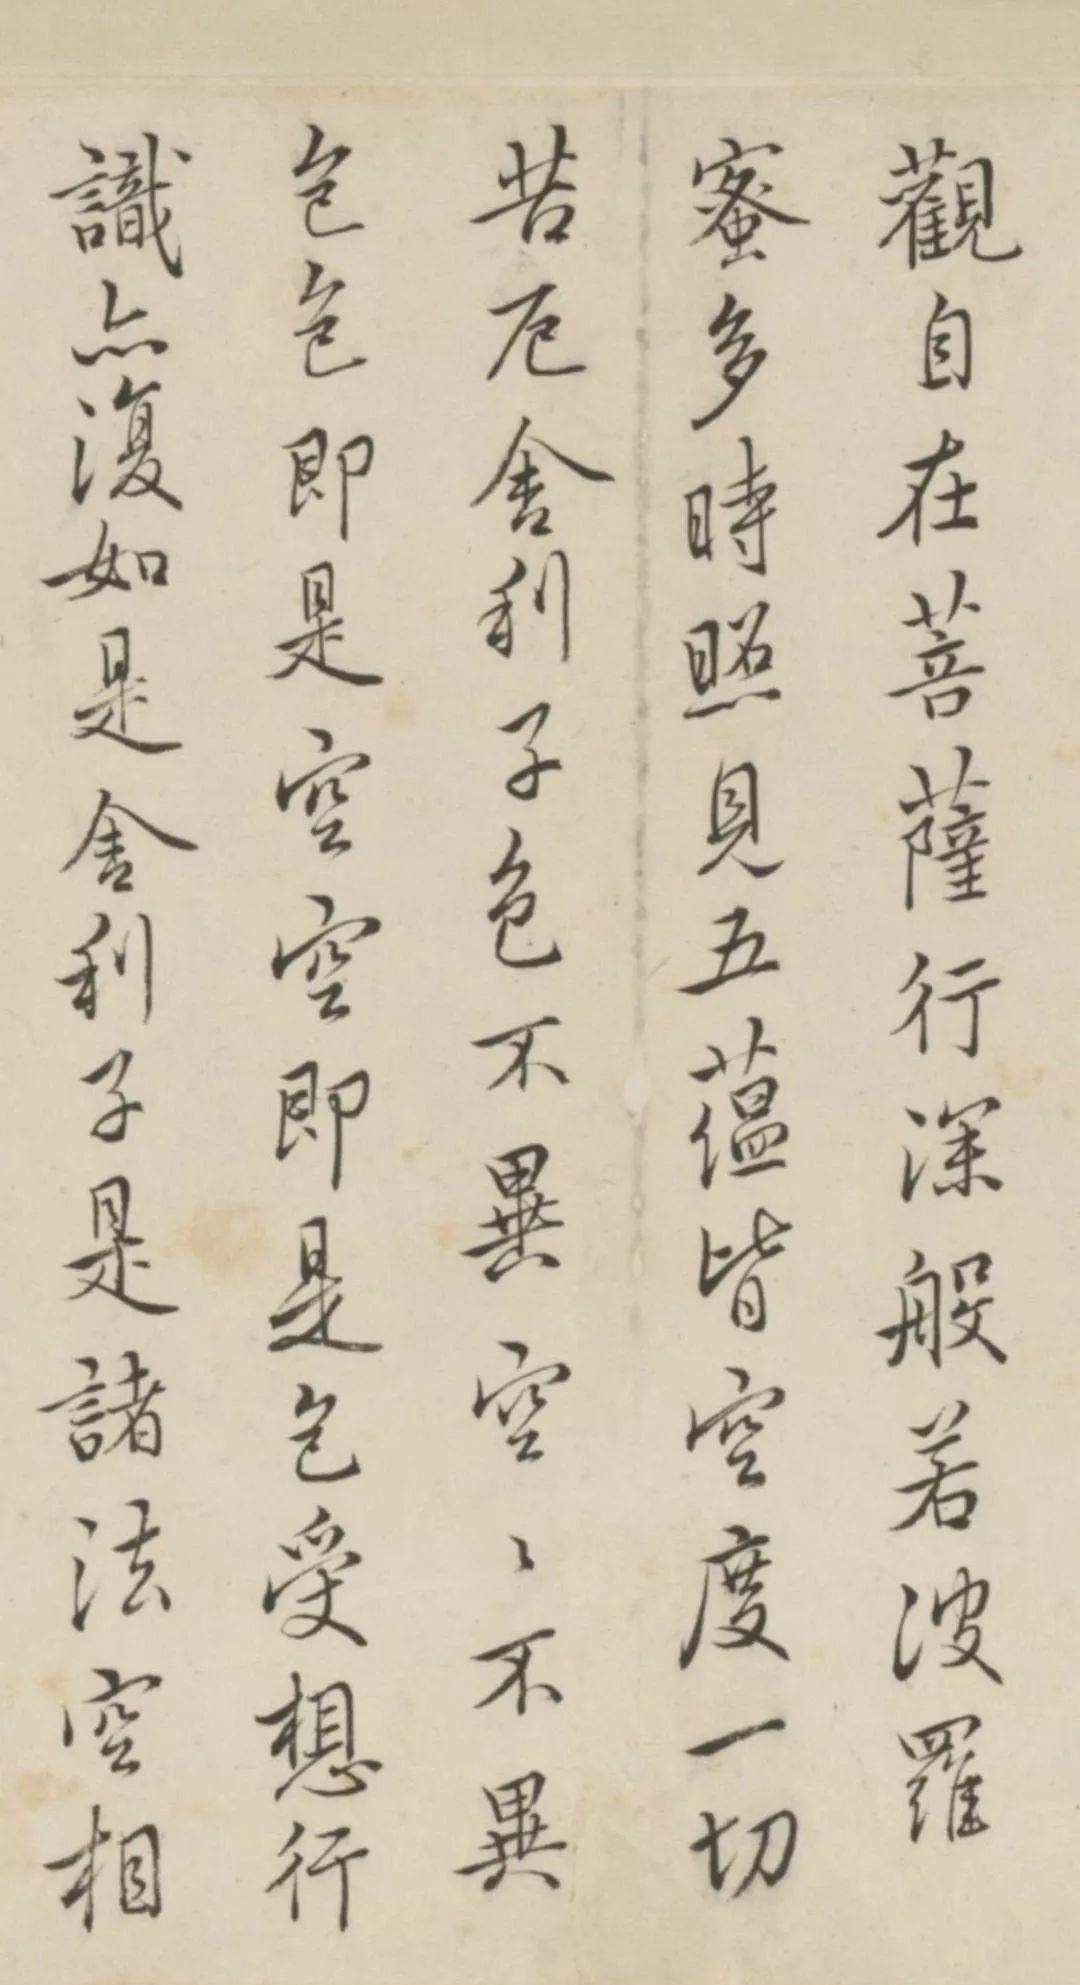 觀自在菩薩行深般若波羅
蜜多時照見五蘊皆空度一切
苦厄舍利子色不異空〻不異
色色即是空空即是色受想行
識亦復如是舍利子是諸法空相